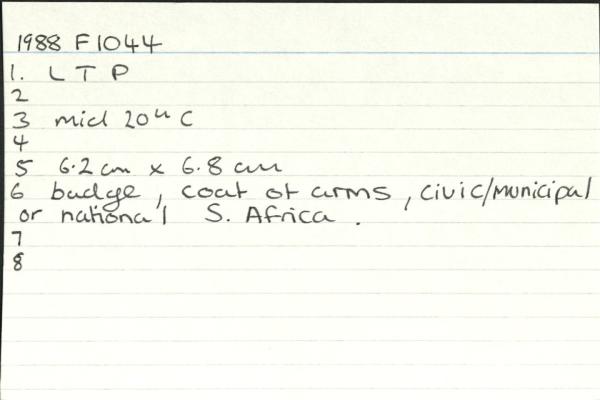 1988 F1044
1. L T P
2
3 mid 20th C
4
5 6.2 cm x 6.8 cm
6 badge, coat of arms, civic/municipal
or national S. Africa.
7
8